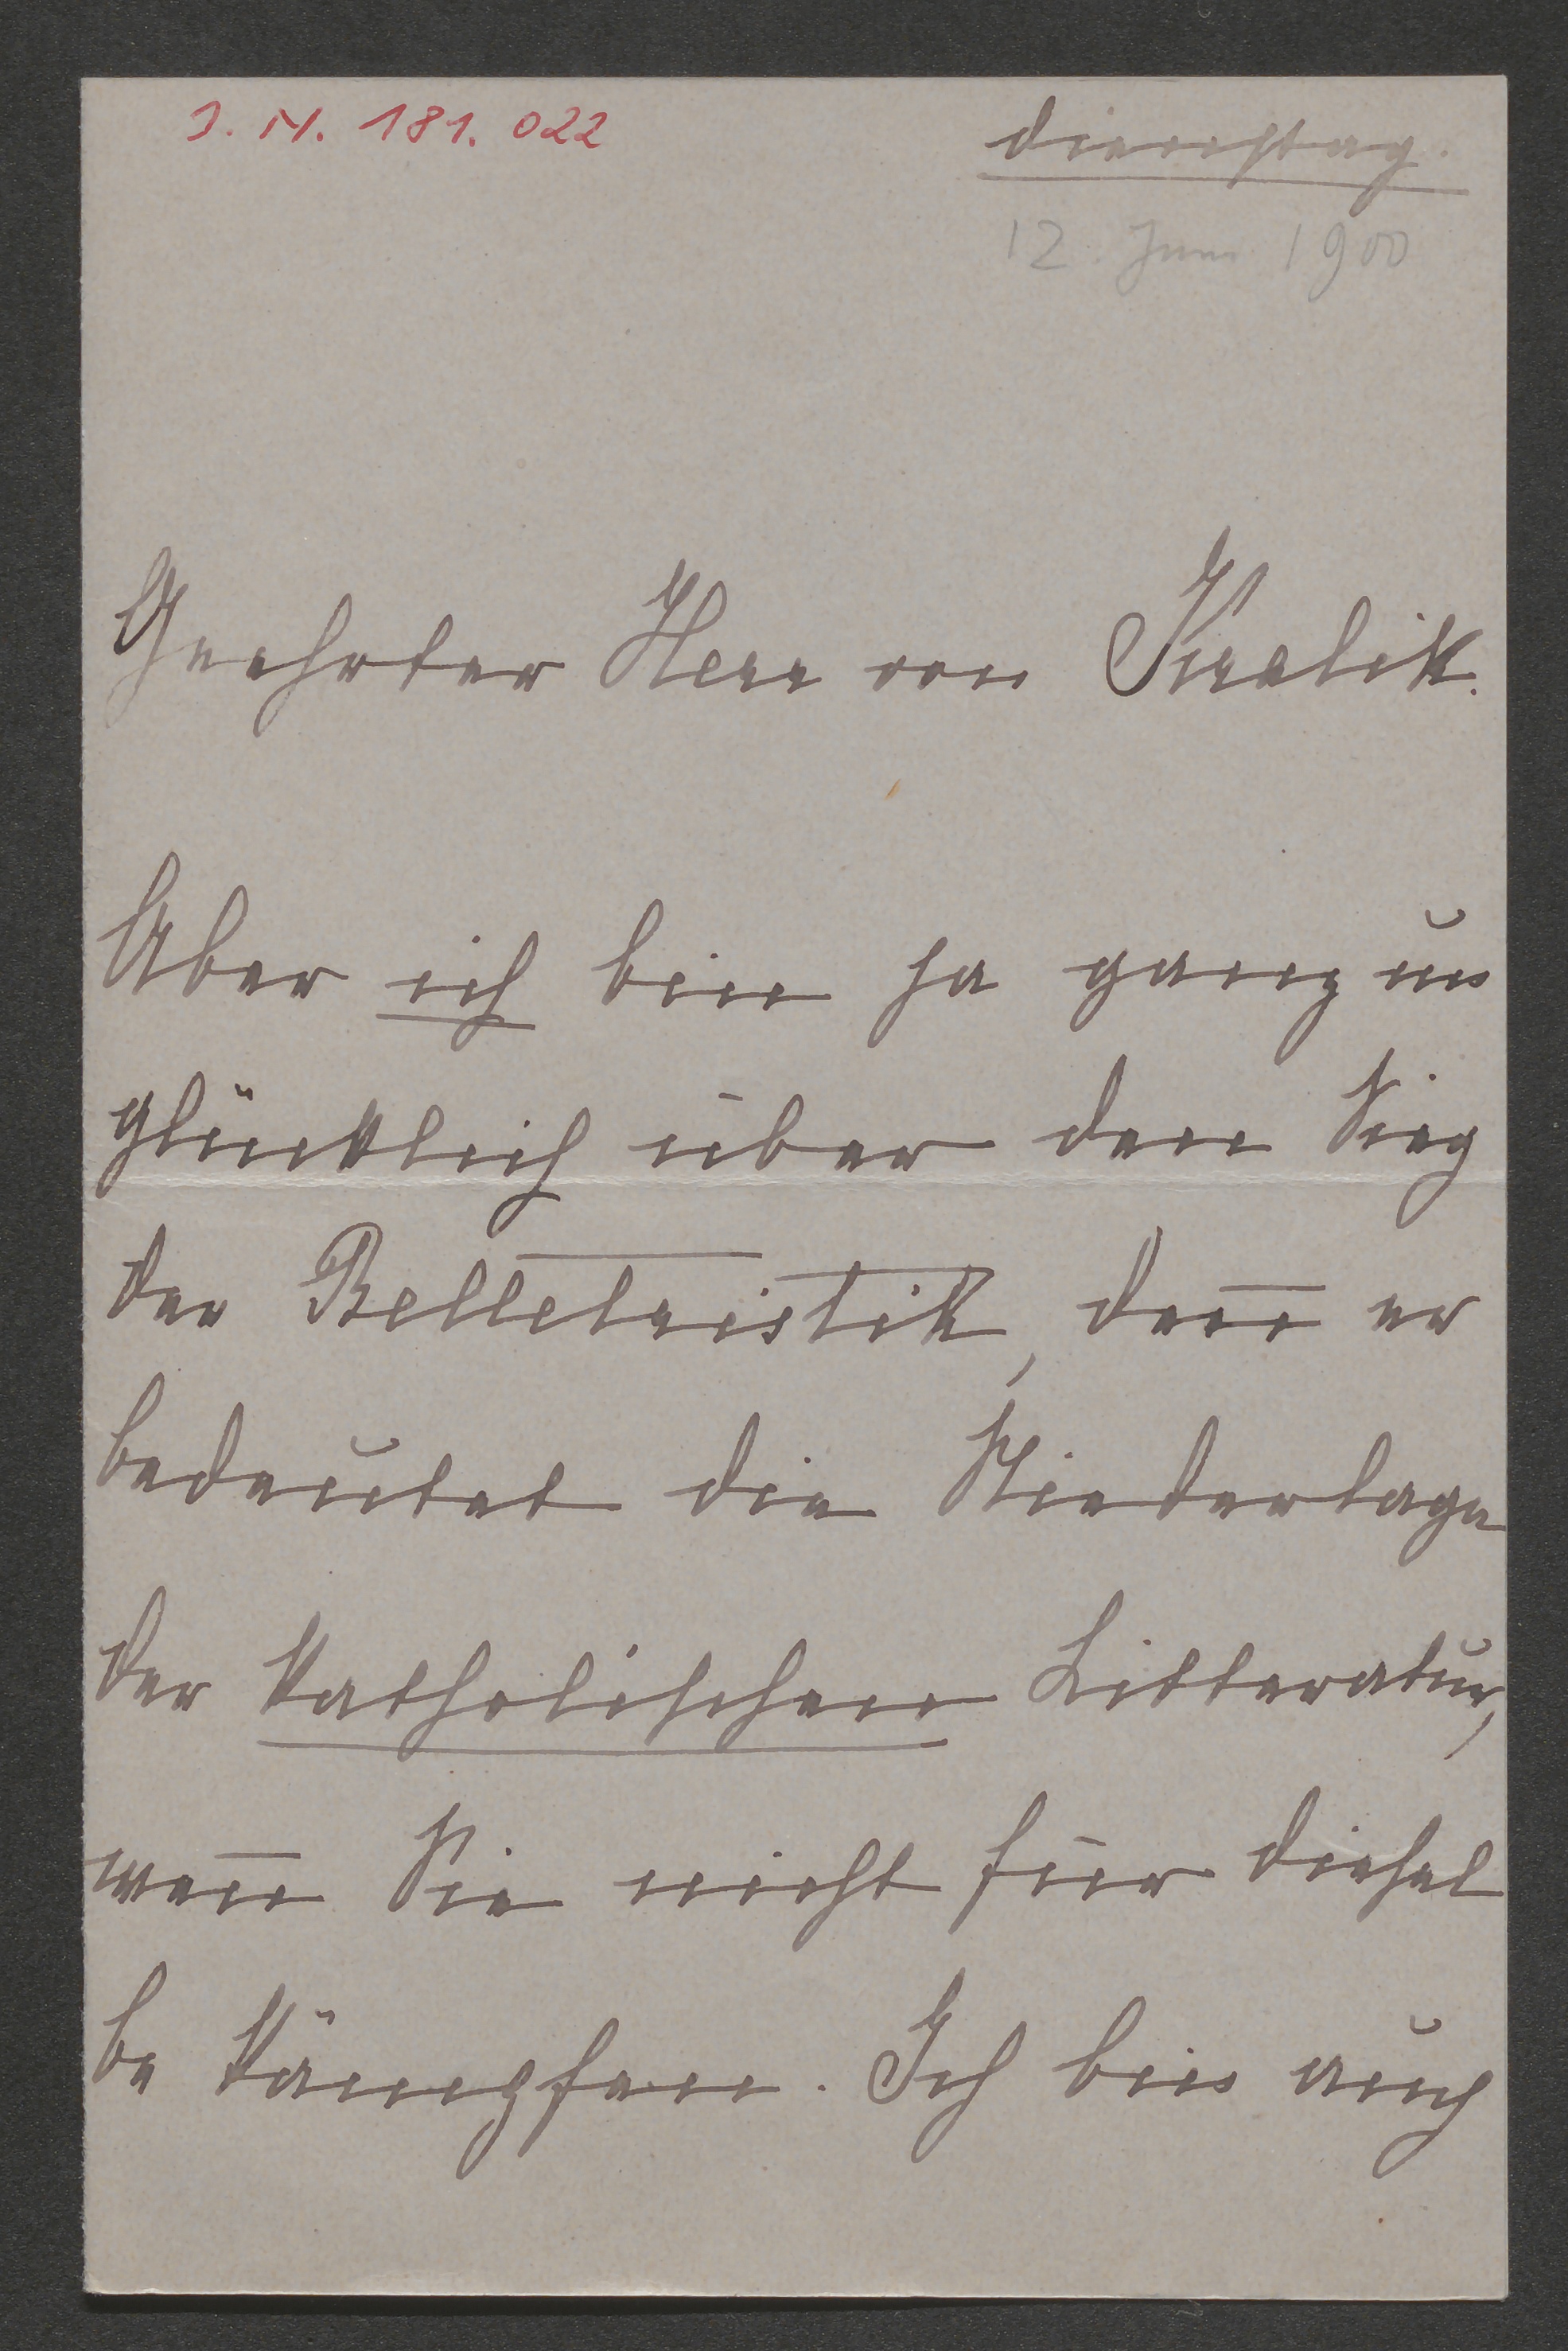 J. N. 181. 022
Dienstag.
12. Juni 1900
Geehrter Herr von Kralik.
Aber ich bin ja ganz un
glücklich über den Sieg
der Belletristik, deñ er
bedeutet die Niederlage
der katholischen Litteratur,
weñ Sie nicht für diesel
be kämpfen. Ich bin auch